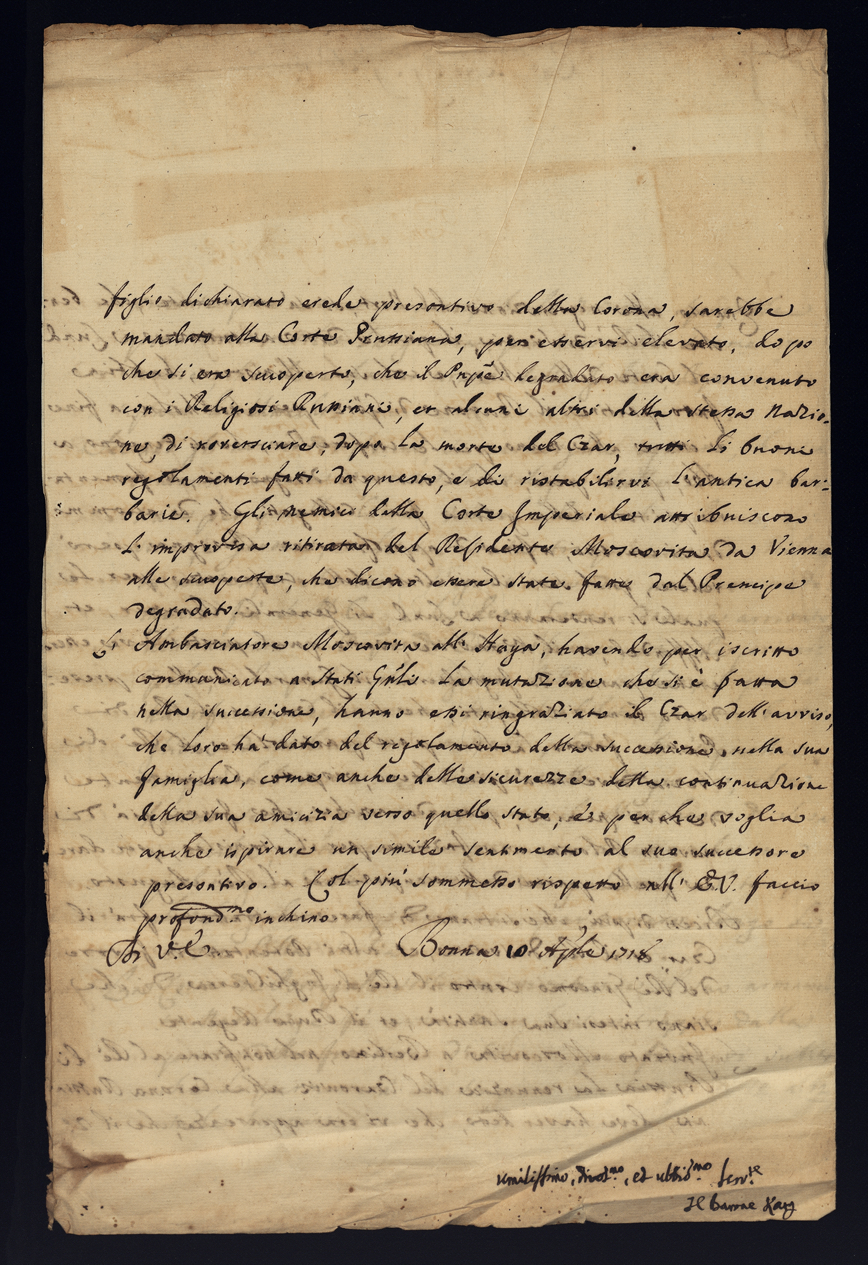 figlio dichiarato erede presontivo della Corona, sarebbe
mandato alla Corte Prussiana, per esservi elevato, dopo
che si era scuoperto, che il Pnpẽ degradato era convenuto
con i Religiosi Russiani, et alcuni altri della stessa Nazio-
ne, di roversciare, dopo la morte del Czar, tutti li buoni
regolamenti fatti da questo, e di ristabilirvi l'antica bar-
barie. Gli nemici della Corte Imperiale attribuiscono
l'improvisa ritirata del Residente Moscovita da Vienna
alle scuoperte, che dicono essere state fatte dal Prencipe
degradato.
L'Ambasciatore Moscovita all'Haya, havendo per iscritto
communicato a Stati Gñli la mutazione che si è fatta
nella successione, hanno essi ringraziato il Czar dell'avviso,
che loro ha dato del regolamento della successione nella sua
famiglia, come anche delle sicurezze della continuazione
della sua amicizia verso quello stato, e perche voglia
anche ispirare un simile sentimento al suo successore
presontivo. Col più sommesso rispetto all' E.V. faccio
profond.mo inchino
Di V.E. Bonna 10 Aprle 1718
umilissimo, divot.mo, et ubbid.mo Serv.re
Il Barone Karg